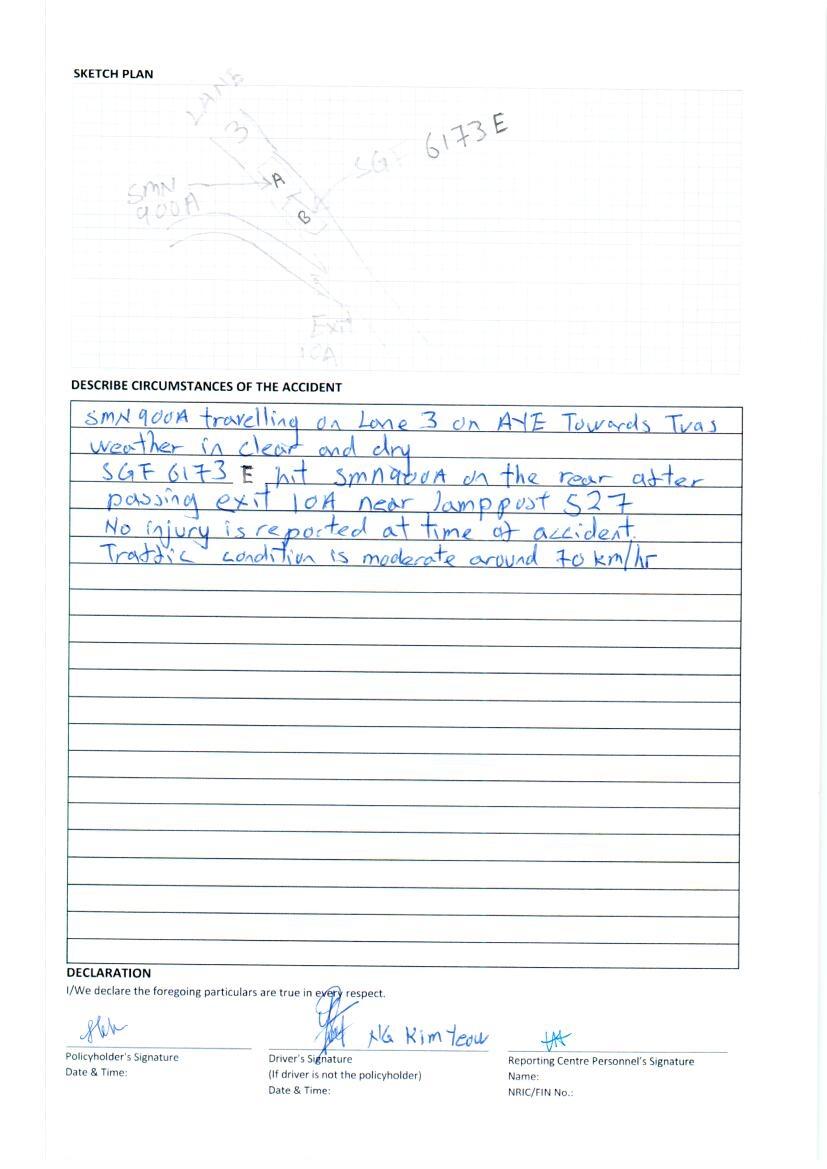 SKETCH PLAN
LANE
3
6173E
SGF
A
SMN
900A
B
Exit
10A
DESCRIBE CIRCUMSTANCES OF THE ACCIDENT
SMN 900A travelling on Lane 3 on AYE Towards Tuas
weather in clear and dry
SGF 6173 E hit SMN900A on the rear after
passing exit 10A near lamppost 527
No injury is reported at time of accident.
Traffic condition is moderate around 70 km/hr
DECLARATION
I/We declare the foregoing particulars are true in every respect.
NG Kim Yeow
Policyholder's Signature
Date & Time:
Driver's Signature
(If driver is not the policyholder)
Date & Time:
Reporting Centre Personnel's Signature
Name:
NRIC/FIN No.: